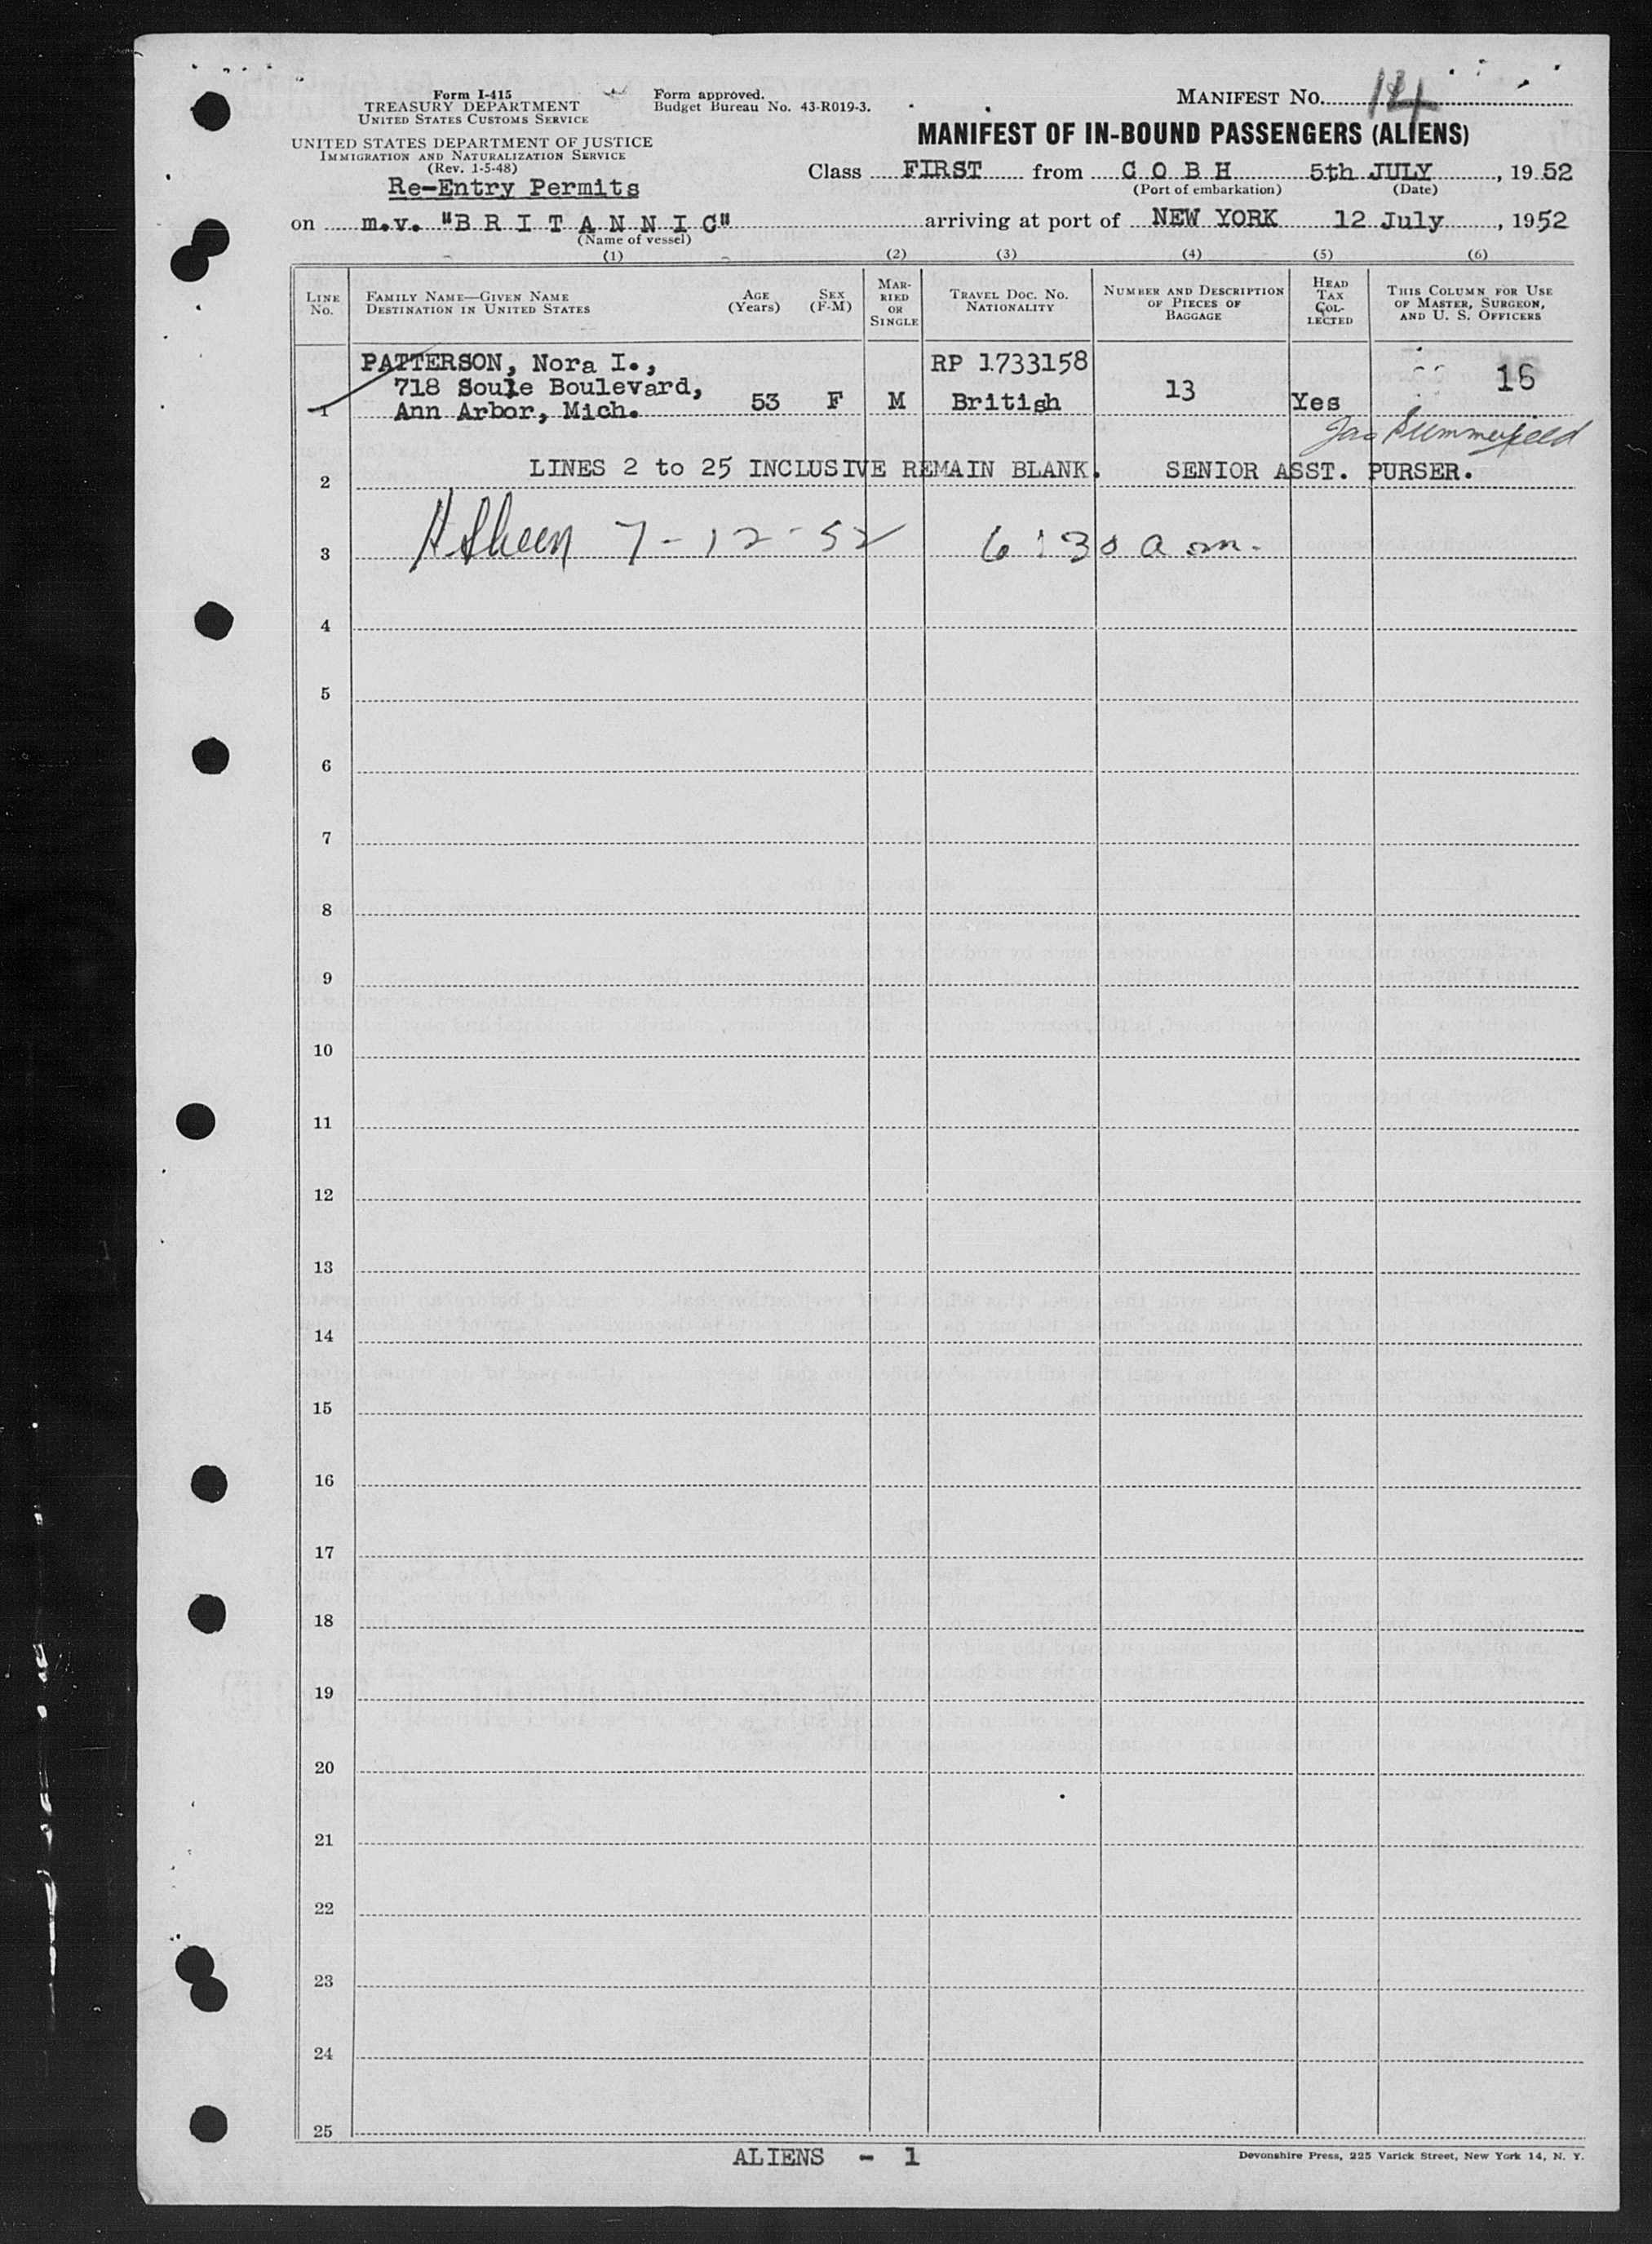 Form I-415
TREASURY DEPARTMENT
UNITED STATES CUSTOMS SERVICE
Form approved.
Budget Bureau No. 43-R019-3.
MANIFEST NO. 14
UNITED STATES DEPARTMENT OF JUSTICE
IMMIGRATION AND NATURALIZATION SERVICE
(Rev. 1-5-48)
Re-Entry Permits
MANIFEST OF IN-BOUND PASSENGERS (ALIENS)
Class FIRST from C O B H 5th JULY, 1952
(Port of embarkation) (Date)
on m.v. "B R I T A N N I C" arriving at port of NEW YORK 12 July, 1952
(Name of vessel)
(1) (2) (3) (4) (5) (6)
LINE NO.
FAMILY NAME—GIVEN NAME
DESTINATION IN UNITED STATES
AGE (Years)
SEX (F-M)
MARRIED OR SINGLE
TRAVEL DOC. NO.
NATIONALITY
NUMBER AND DESCRIPTION OF PIECES OF BAGGAGE
HEAD TAX COLLECTED
THIS COLUMN FOR USE OF MASTER, SURGEON, AND U. S. OFFICERS
PATTERSON, Nora I., RP 1733158 16
718 Soule Boulevard,
1 Ann Arbor, Mich. 53 F M British 13 Yes
Jas Summerfield
2 LINES 2 to 25 INCLUSIVE REMAIN BLANK. SENIOR ASST. PURSER.
3 7-12-52 6:30 a m.
4
5
6
7
8
9
10
11
12
13
14
15
16
17
18
19
20
21
22
23
24
25
ALIENS - 1
Devonshire Press, 225 Varick Street, New York 14, N. Y.